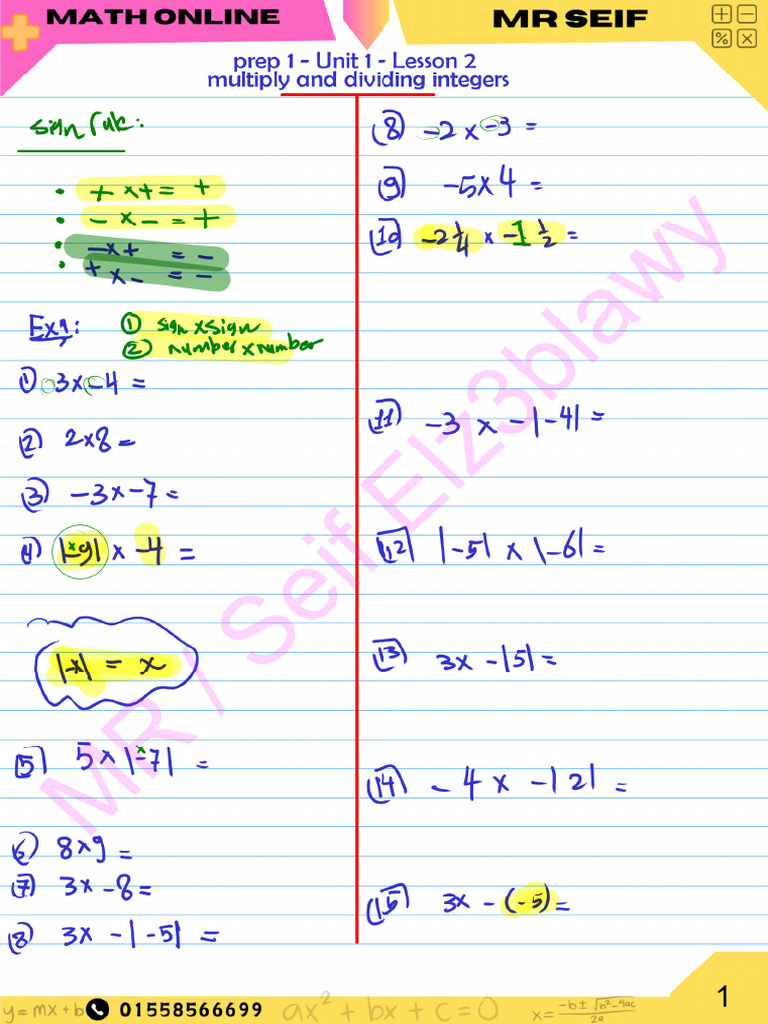 MATH ONLINE
MR SEIF
prep 1 - Unit 1 - Lesson 2
multiply and dividing integers
sign rule:
• + x + = +
• - x - = +
• - x + = -
• + x - = -
Exq:
① sign x sign
② number x number
① 3 x -4 =
② 2 x 8 =
③ -3 x -7 =
④ |-9| x -4 =
|-x| = x
5) 5 x |-7| =
6) 8 x 9 =
(7) 3 x -8 =
(8) 3 x -|-5| =
(8) -2 x -3 =
9) -5 x 4 =
(10) -2 1/4 x -1 1/2 =
(11) -3 x -|-4| =
(12) |-5| x |-6| =
(13) 3 x -|5| =
(14) -4 x -|2| =
(15) 3 x -(-5) =
MR / Seif Elz3blawy
y = mx + b
01558566699
ax² + bx + c = 0
x = -b ± √b²-4ac / 2a
1